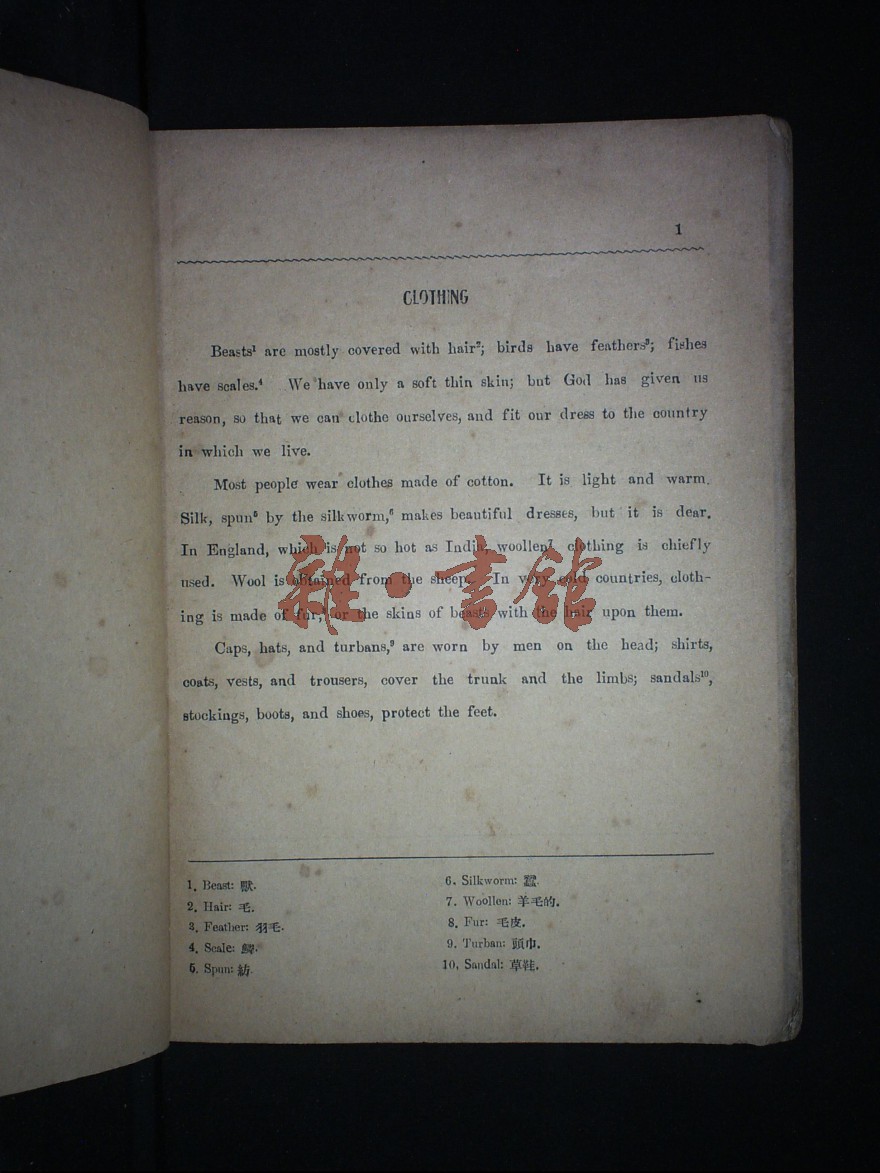 1
CLOTHING
Beasts¹ are mostly covered with hair²; birds have feathers³; fishes
have scales.⁴ We have only a soft thin skin; but God has given us
reason, so that we can clothe ourselves, and fit our dress to the country
in which we live.
Most people wear clothes made of cotton. It is light and warm.
Silk, spun⁵ by the silkworm,⁶ makes beautiful dresses, but it is dear.
In England, which is not so hot as India, woollen⁷ clothing is chiefly
used. Wool is obtained from the sheep. In very cold countries, cloth-
ing is made of fur,⁸ or the skins of beasts with the hair upon them.
雜·書館
Caps, hats, and turbans,⁹ are worn by men on the head; shirts,
coats, vests, and trousers, cover the trunk and the limbs; sandals¹⁰,
stockings, boots, and shoes, protect the feet.
1. Beast: 獸.
2. Hair: 毛.
3. Feather: 羽毛.
4. Scale: 鱗.
5. Spun: 紡.
6. Silkworm: 蠶.
7. Woollen: 羊毛的.
8. Fur: 毛皮.
9. Turban: 頭巾.
10. Sandal: 草鞋.